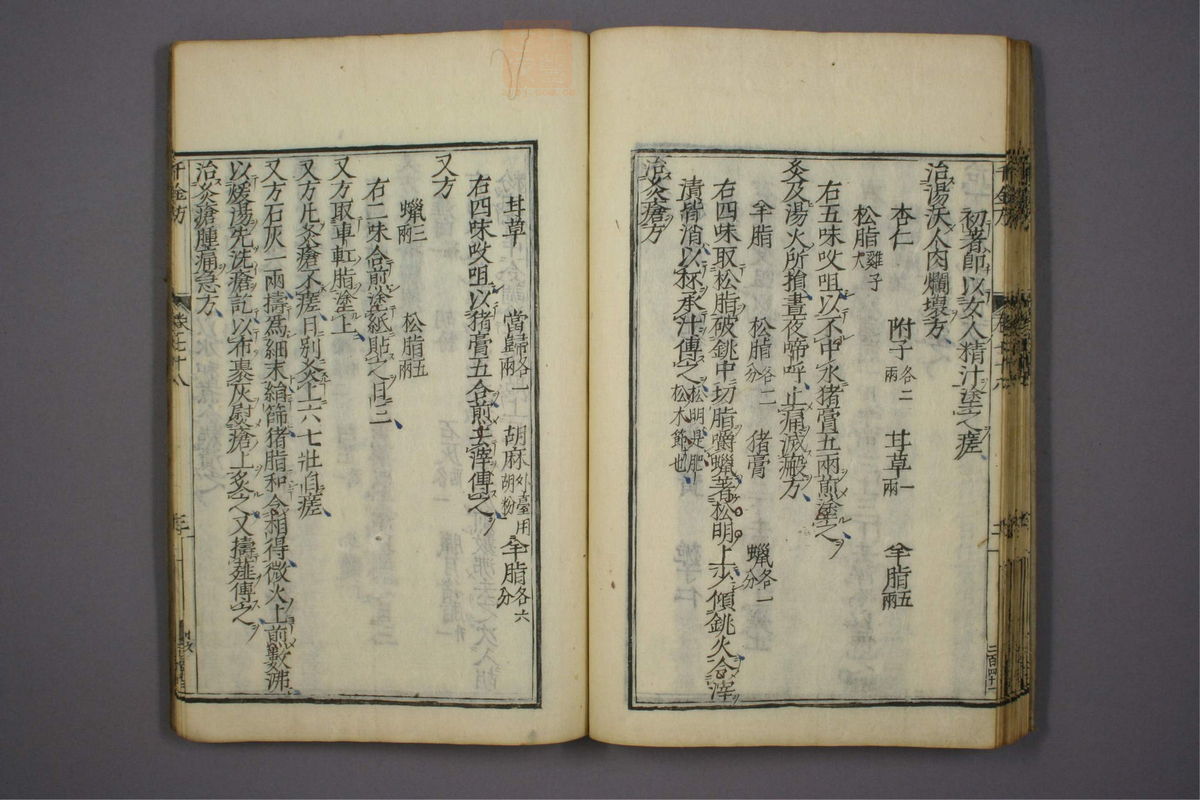 初者即以女人精汁塗之瘥
治湯沃人肉爛壞方
杏仁 附子各二兩 甘草一兩 羊脂五兩
松脂雞子大
右五味㕮咀以不中水猪膏五兩煎塗之
灸及湯火所損晝夜啼呼止痛滅瘢方
羊脂 松脂各二分 猪膏 蠟各一分
右四味取松脂破銚中切脂嚼蠟著松明上少傾銚火令滓
清皆消以杯承汁傅之松明是肥松木節也
治灸瘡方
甘草 當歸各一兩 胡麻外臺用胡粉 羊脂各六分
右四味㕮咀以猪膏五合煎去滓傅之
又方
蠟三兩 松脂五兩
右二味合煎塗紙貼之日三
又方取車䡃脂塗上
又方凡灸瘡不瘥日別灸上六七壯自瘥
又方石灰一兩擣爲細末絹篩猪脂和令相得微火上煎數沸
以煖湯先洗瘡訖以布裹灰熨瘡上灸之又擣薤傅之
治灸瘡腫痛急方
千金方